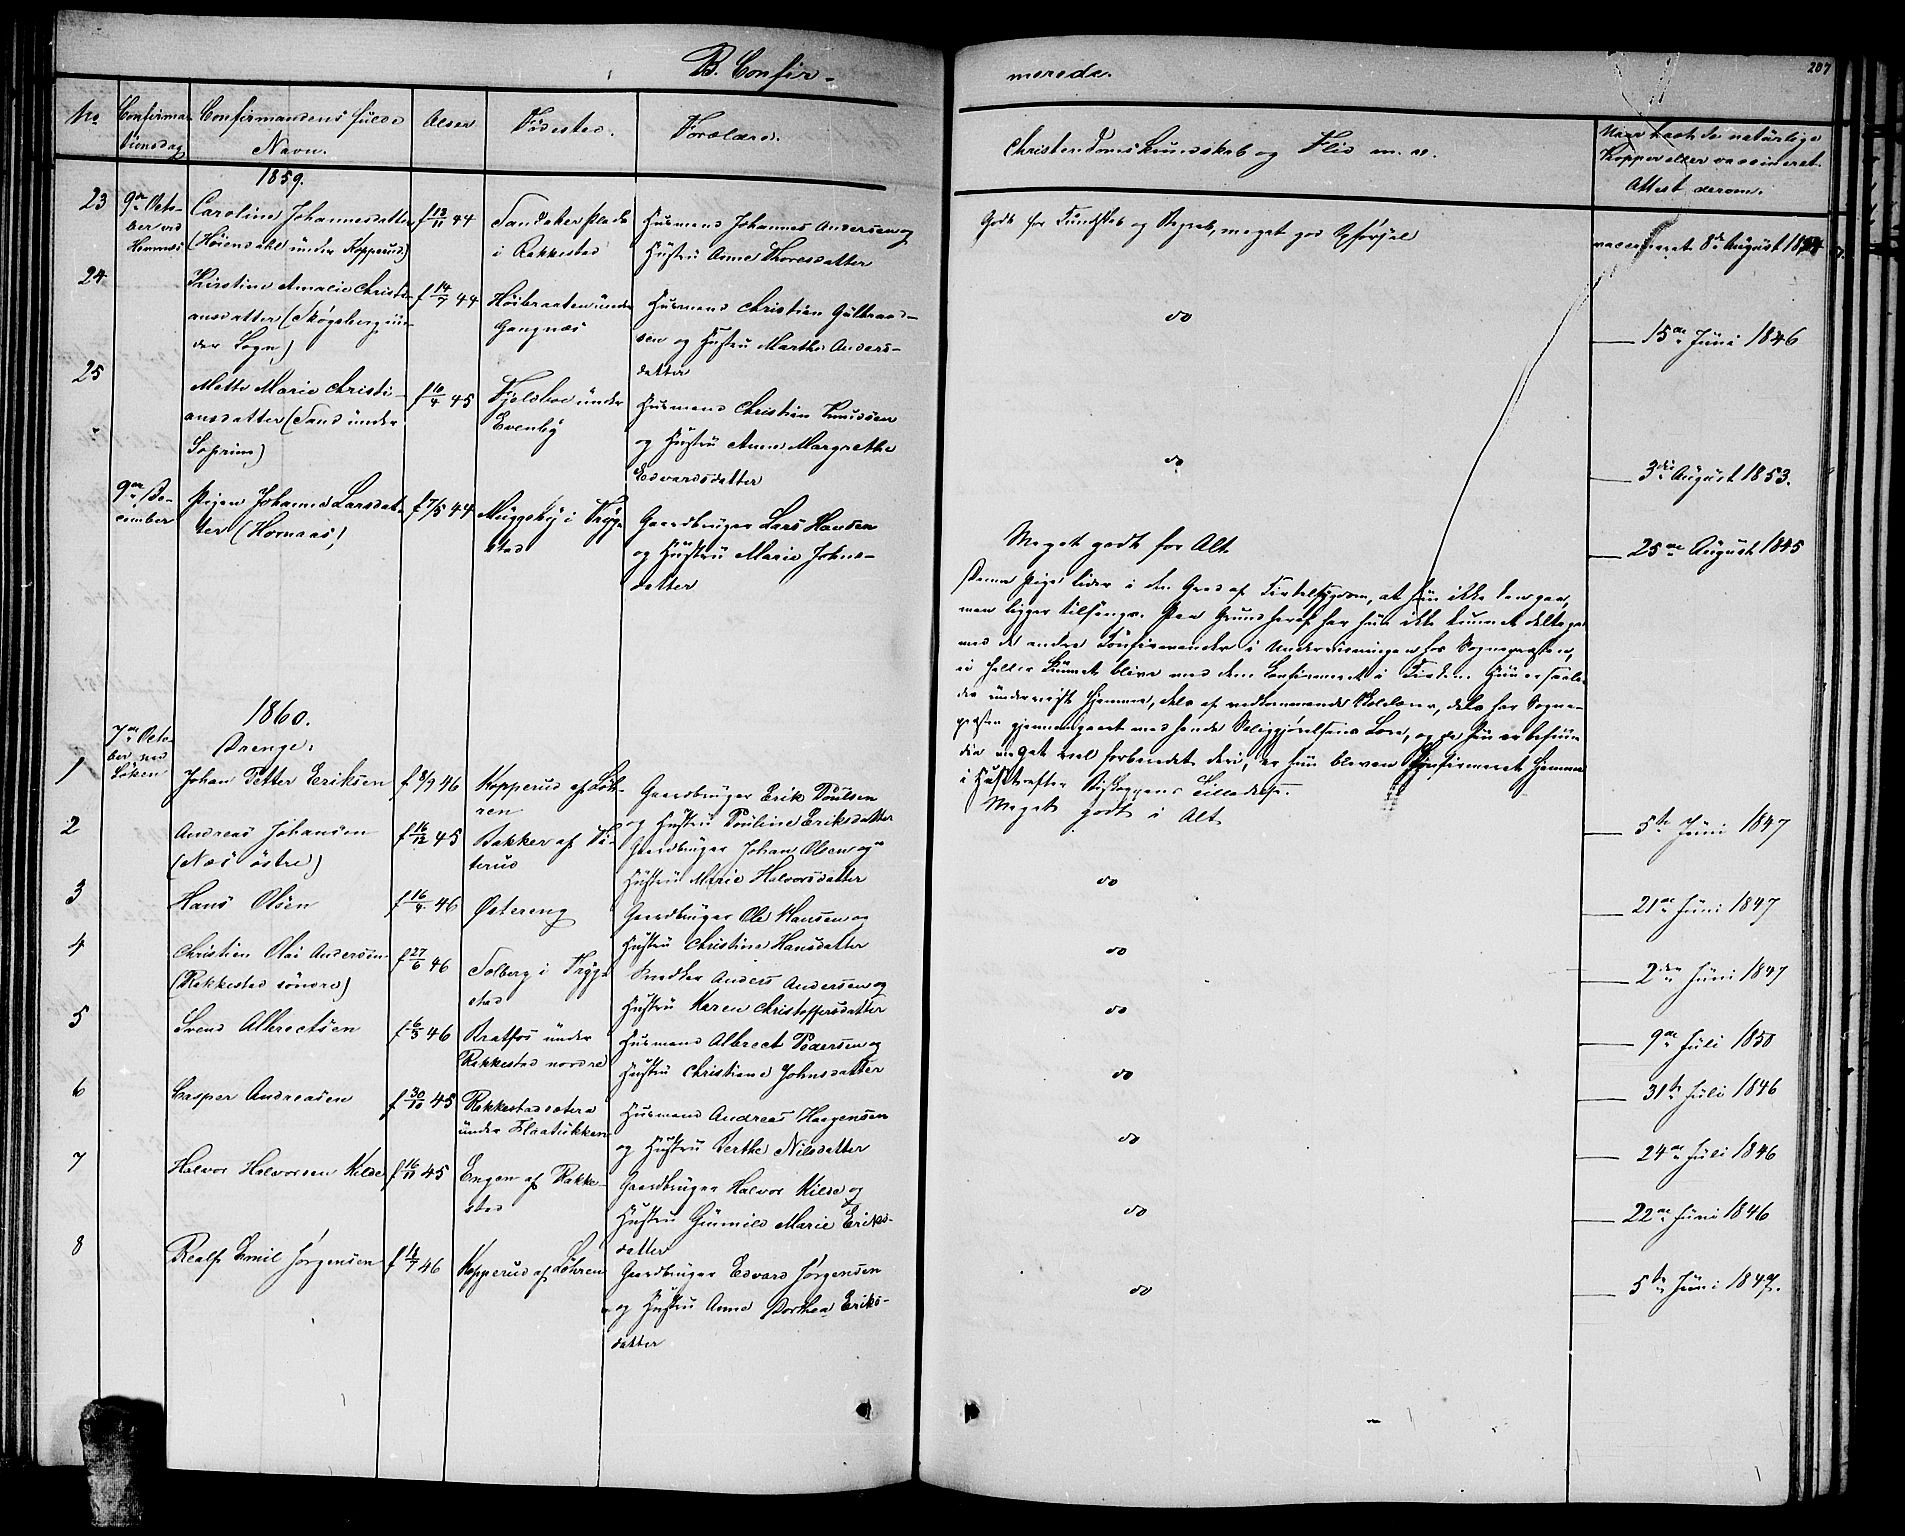 B. Confir-
merede.
207
No
Confirma-
tionsdag
Confirmandens fulde
Navn.
Alder
Födested.
Forældre.
Christendomskundskab og Flid m. v.
Naar havt de natürlige
Kopper eller vaccineret.
Attest derom.
1859.
23
9de Octo-
ber ved
Hemnæs
Caroline Johannesdatter
(Høiendahl ünder Kopperud)
f 13/11 44
Sandaker Plads
i Rakkestad
Husmand Johannes Andersen og
Hustru Anne Thoresdatter
Godt for Kundskab og Begreb, meget god Opførsel
vaccineret 8de August 1854
24
Kirstine Amalie Christi-
ansdatter (Skøgsberg ün-
der Sogn)
f 14/7 44
Høibraaten ünder
Gangnæs
Husmand Christian Gülbrands-
sen og Hustrü Marthe Anders-
datter
do
15de Jüni 1846
25
Mette Marie Christi-
ansdatter (Sand ünder
Soprim)
f 10/4 45
Fjeldboe ünder
Evenby
Husmand Christian Knudsen
og Hustrü Anne Margrethe
Edvardsdatter
do
3die August 1853.
9de De-
cember
Pigen Johanne Larsdat-
ter (Hornaas)
f 7/5 44
Müggeby i Tryg-
stad
Gaardbruger Lars Hansen
og Hustrü Marie Johns-
datter
Meget godt for Alt
25de August 1845
Denne Pige lider i den Grad af Kirtelsygdom, at hün ikke kan gaae,
men ligger tilsengs. Paa Grund heraf har hün ikke kunnet deltage
med de andre Confirmander i Underviisningen hos Sognepræsten,
ei heller künnet blive med dem confirmeret i Kirken. Hün er saale-
des ünderviist hjemme, dels af vedkommende Skolelærer, dels har Sogne-
præsten gjennemgaaet med hende Saliggjørelsens Lære, og da hün er befun-
den meget vel forberedet deri, er hün bleven Confirmeret hjemme
i Huset efter Biskoppens Tilladelse.
1860.
Drenge.
7de Octo-
ber ved
Löken
1
Johan Petter Eriksen
f 8/9 46
Kopperud af Løk-
ren
Gaardbrüger Erik Poulsen
og Hustrü Pouline Eriksdatter
Meget godt i Alt
5te Jüni 1847
2
Andreas Johansen
(Næs østre)
f 16/12 45
Bakker af Ti-
terud
Gaardbrüger Johan Olsen og
Hüstrü Marie Halvorsdatter
do
21de Jüni 1847
3
Hans Olsen
f 16/4 46
Østereng
Gaardbrüger Ole Hansen og
Hustrü Christine Hansdatter
do
2den Jüni 1847
4
Christian Olai Andersen
(Rakkestad söndre)
f 27/6 46
Solberg i Tryg-
stad
Snedker Anders Andersen og
Hustrü Karen Christoffersdatter
do
9de Jüli 1850
5
Svend Albrectsen
f 6/3 46
Bratfos ünder
Rakkestad nordre
Husmand Albrect Pedersen og
Hustrü Christiane Johnsdatter
do
31te Jüli 1846
6
Casper Andreasen
f 30/10 45
Rakkestadsætera
ünder Flaatükken
Husmand Andreas Haagensen
og Hustrü Berthe Nilsdatter
do
24de Jüli 1846
7
Halvor Halvorsen Kilde
f 16/11 45
Engen af Rakke-
stad
Gaardbrüger Halvor Kilde og
Hustrü Günnild Marie Eriks-
datter
do
22de Jüni 1846
8
Realf Emil Jørgensen
f 18/7 46
Kopperud af Løkren
Gaardbrüger Edvard Jørgensen
og Hustrü Anne Dorthea Eriks-
datter
do
5te Jüni 1847.